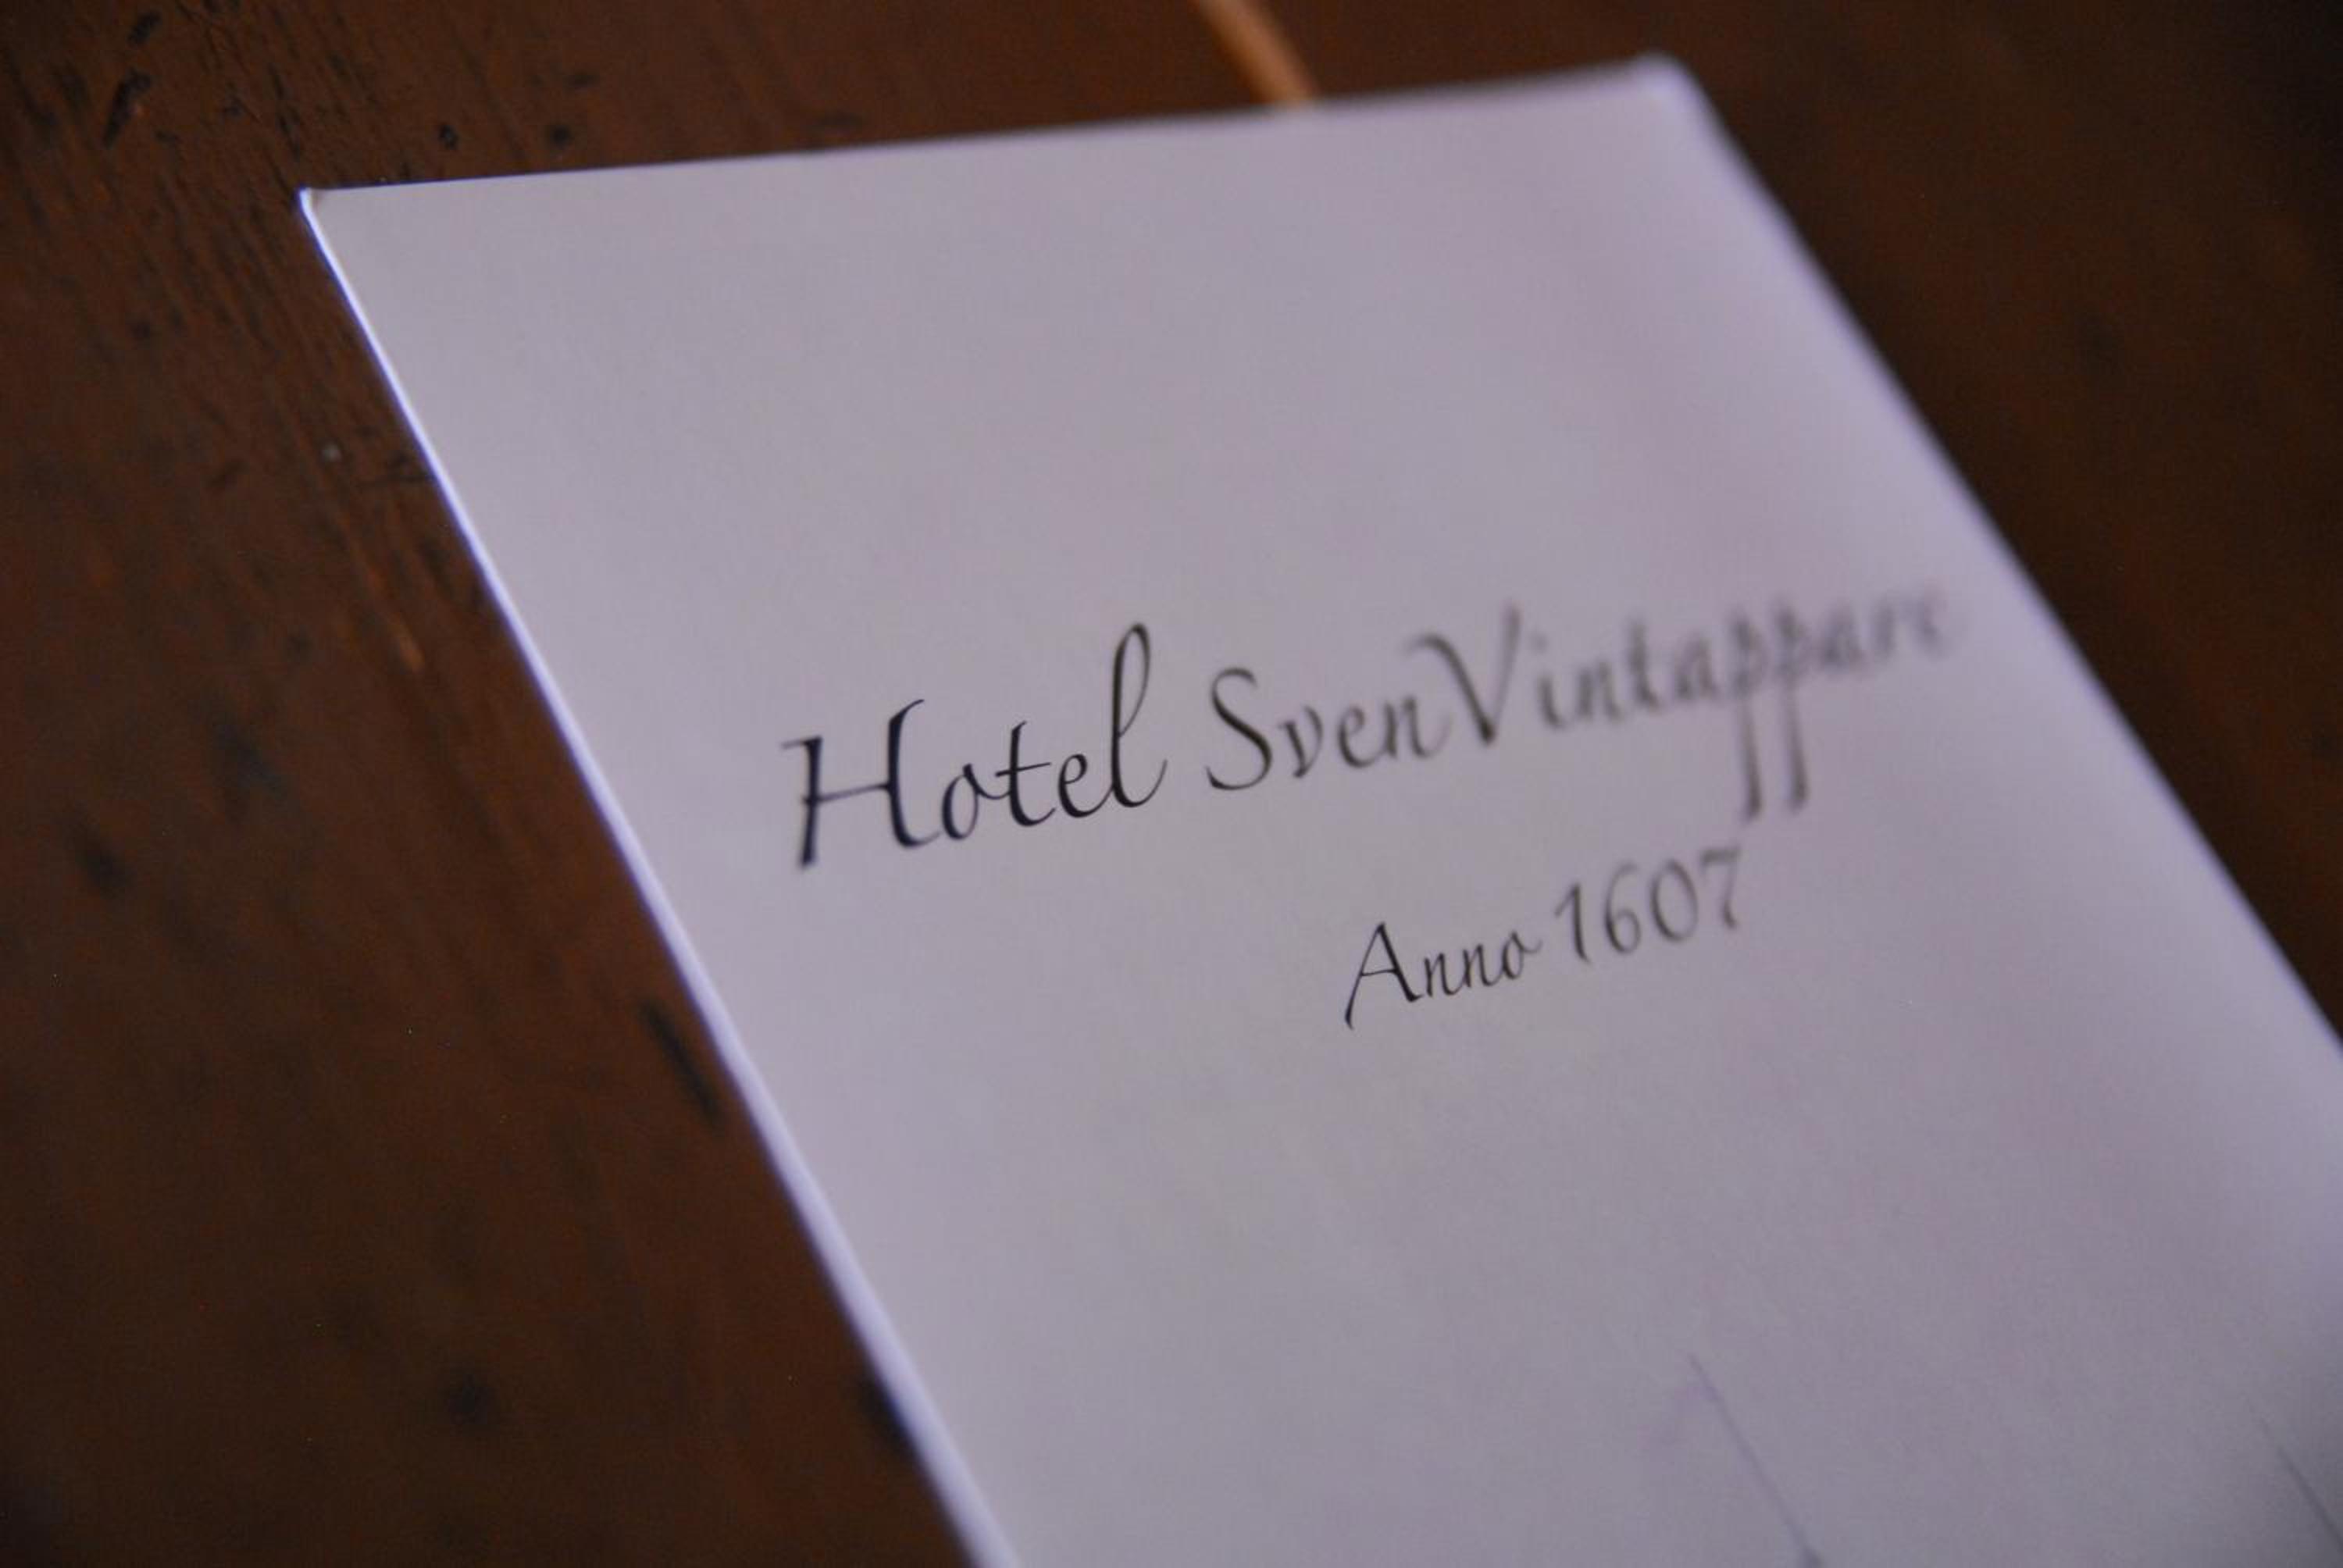 Hotel SvenVintappare
Anno 1607